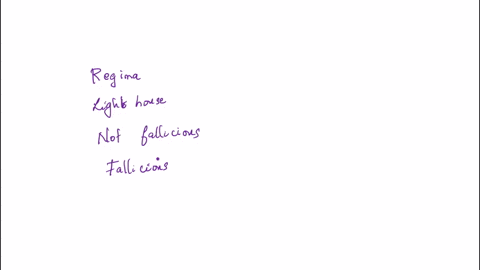 Regina
Light house
Not fallicious
Fallicious